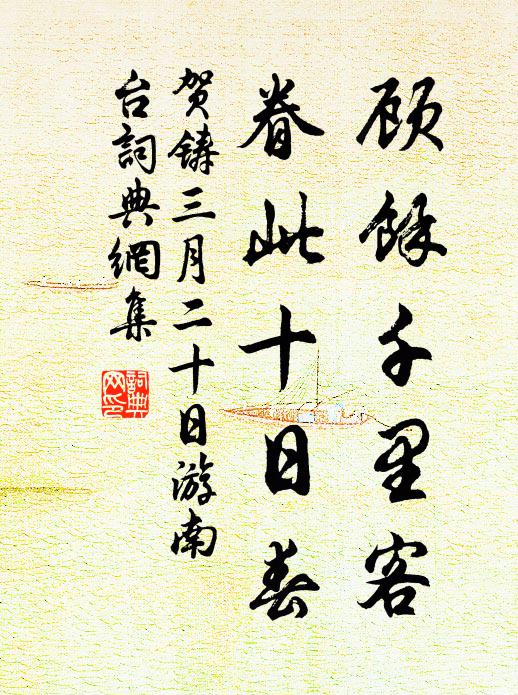 顾餘千里客
眷此十日春
贺鑄三月二十日游南
台詞典網集
詞典網印